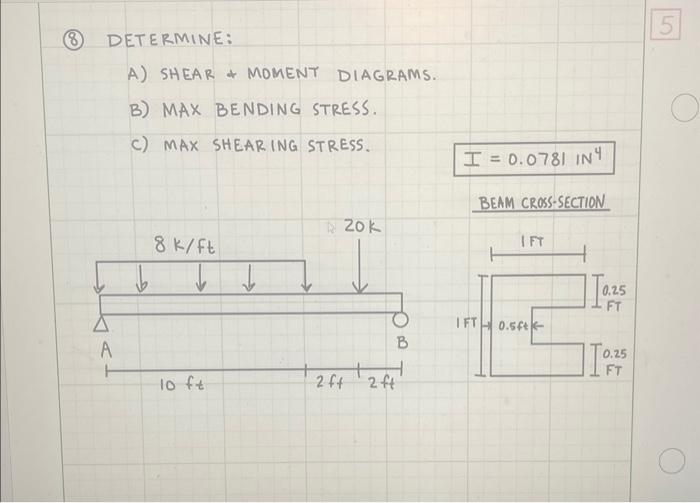 5
8 DETERMINE:
A) SHEAR + MOMENT DIAGRAMS.
B) MAX BENDING STRESS.
C) MAX SHEARING STRESS.
I = 0.0781 IN⁴
BEAM CROSS-SECTION
20K
8 K/ft
1 FT
0.25
FT
1 FT
0.5ft
0.25
FT
A
B
10 ft
2 ft
2 ft